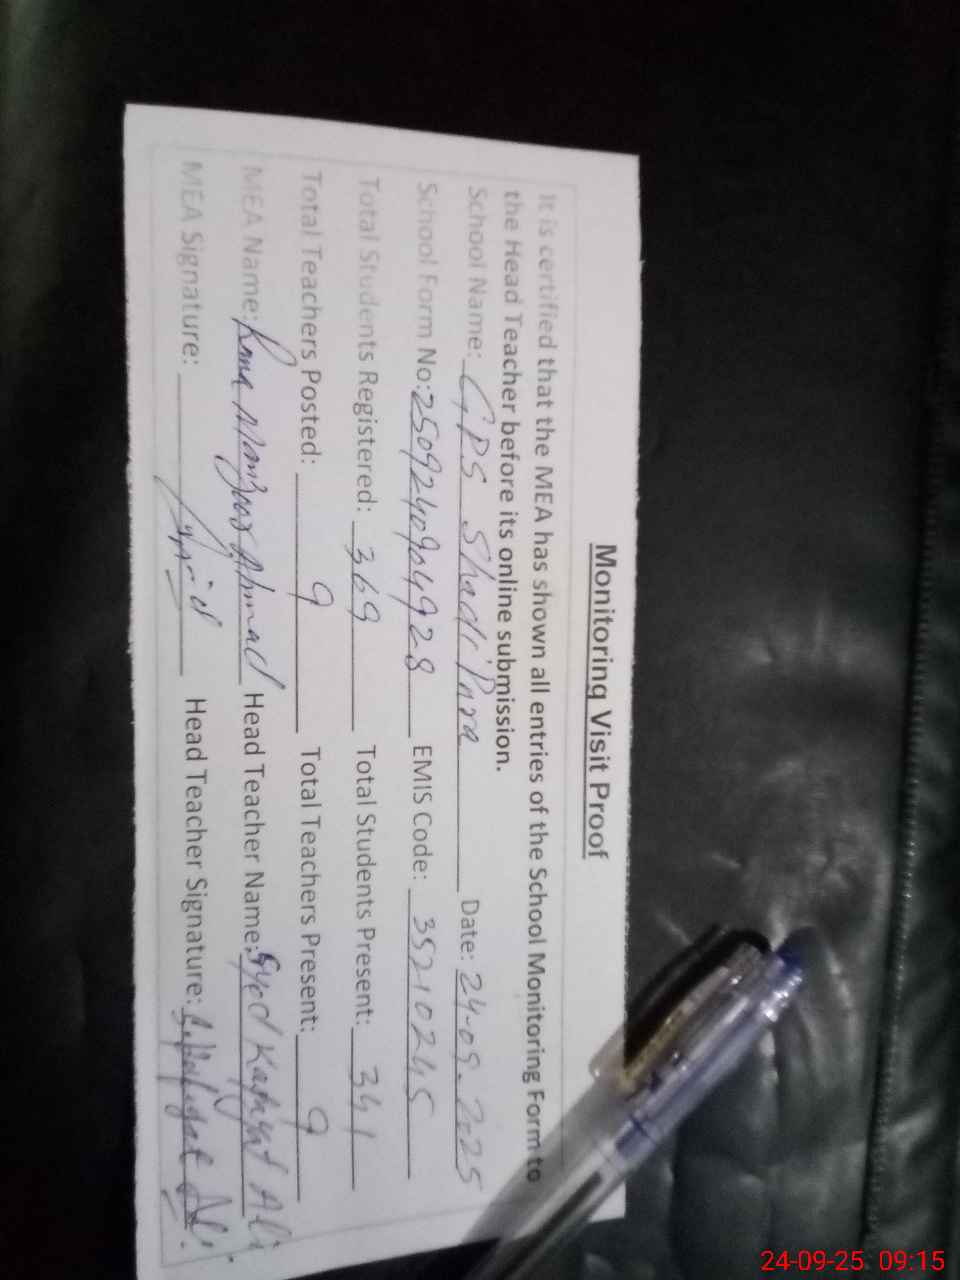 Monitoring Visit Proof
It is certified that the MEA has shown all entries of the School Monitoring Form to
the Head Teacher before its online submission.
School Name: GPS Shadi Pura Date: 24-09-2025
School Form No: 2509240904928 EMIS Code: 35210245
Total Students Registered: 369 Total Students Present: 341
Total Teachers Posted: 9 Total Teachers Present: 9
MEA Name: Rana Manzoor Ahmad Head Teacher Name: Syed Kafayat Ali
MEA Signature: Head Teacher Signature:
24-09-25 09:15